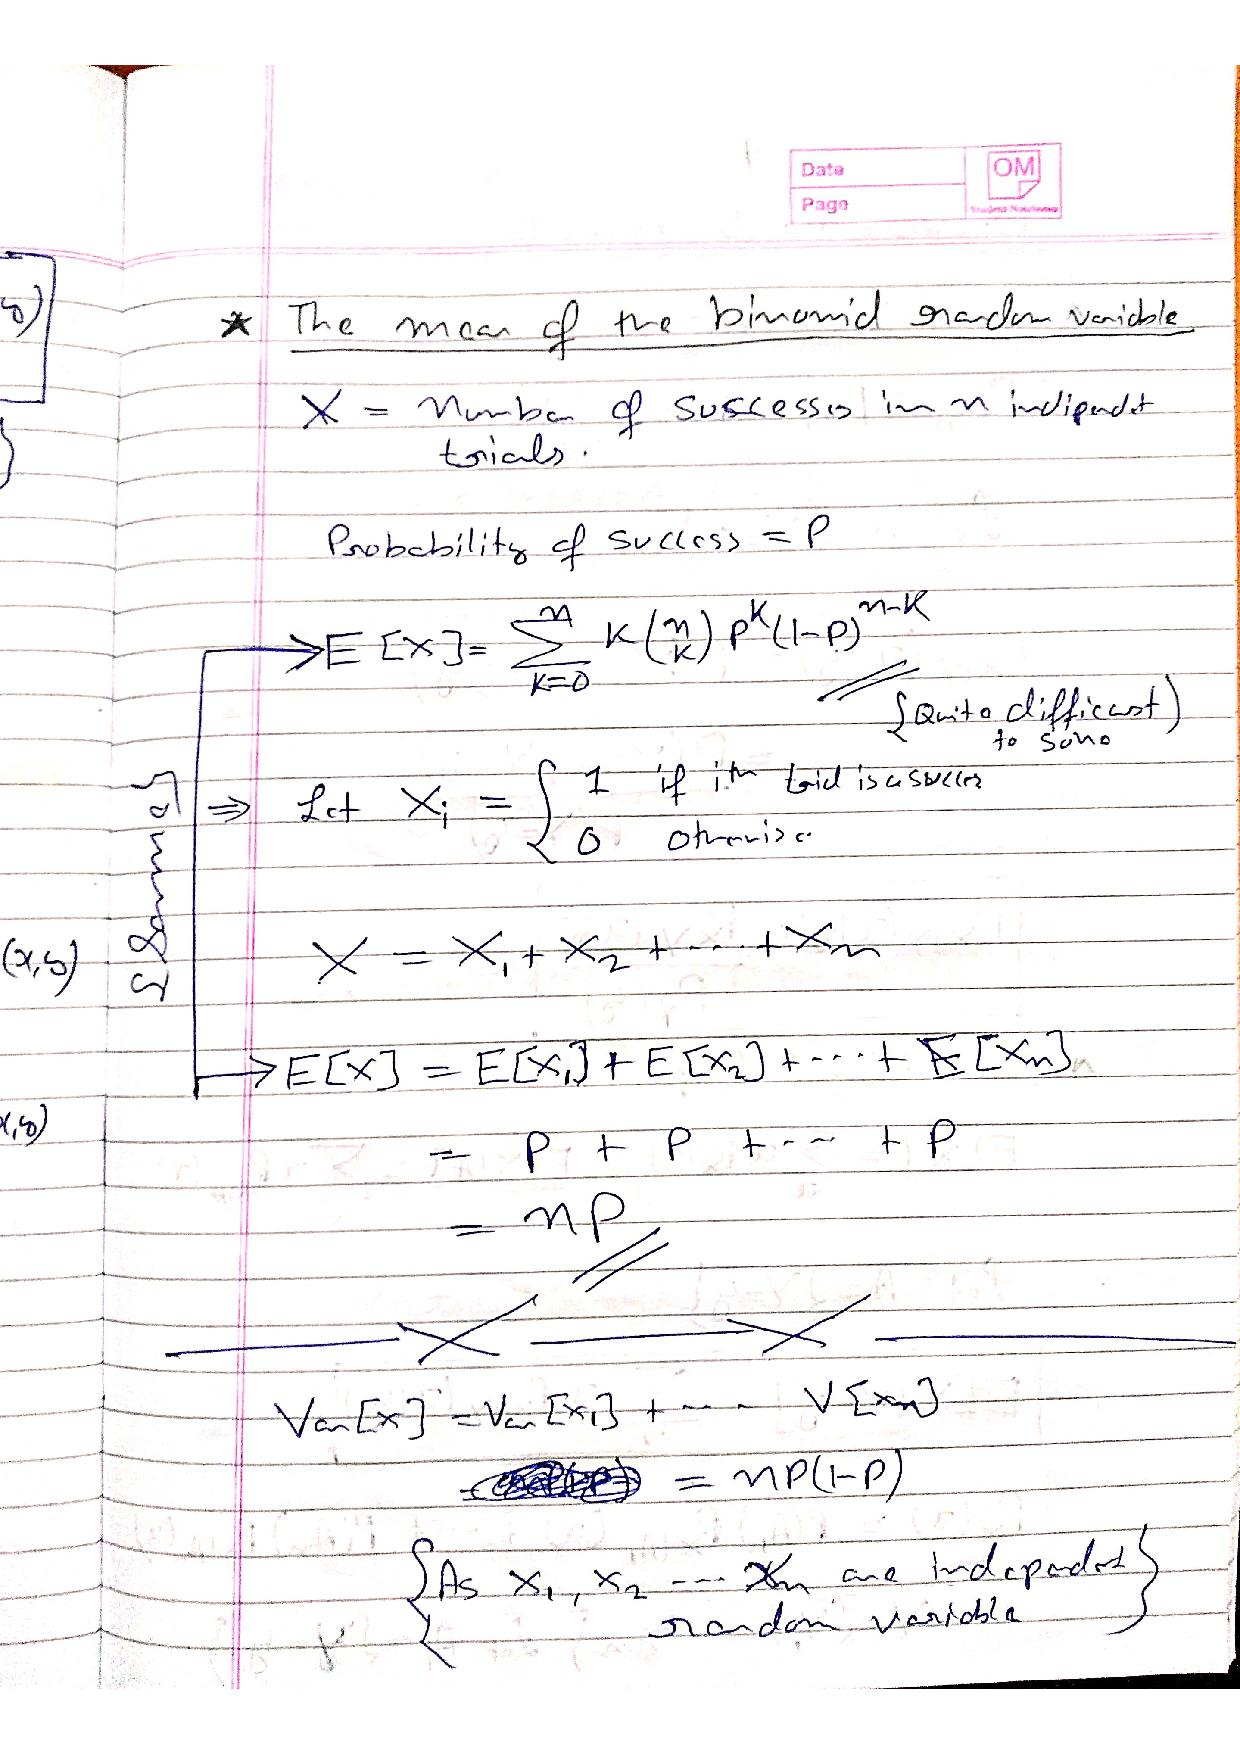 Date
Page
OM
* The mean of the binomial random variable
X = Number of successes in n indipendet
trials.
Probability of success = P
E[X] = ∑_{K=0}^{n} K (n K) P^K (1-P)^{n-K}
{Quite difficult}
to
{Same}
⇒ Let X_i = { 1 if ith trial is a success
0 otherwise
X = X_1 + X_2 + ---- + X_n
(x,y)
E[X] = E[X_1] + E[X_2] + ---- + E[X_n]
(x,y)
= P + P + --- + P
= nP
Var[X] = Var[X_1] + --- V[X_n]
= nP(1-P)
{As X_1, X_2 --- X_n are independent}
random variable